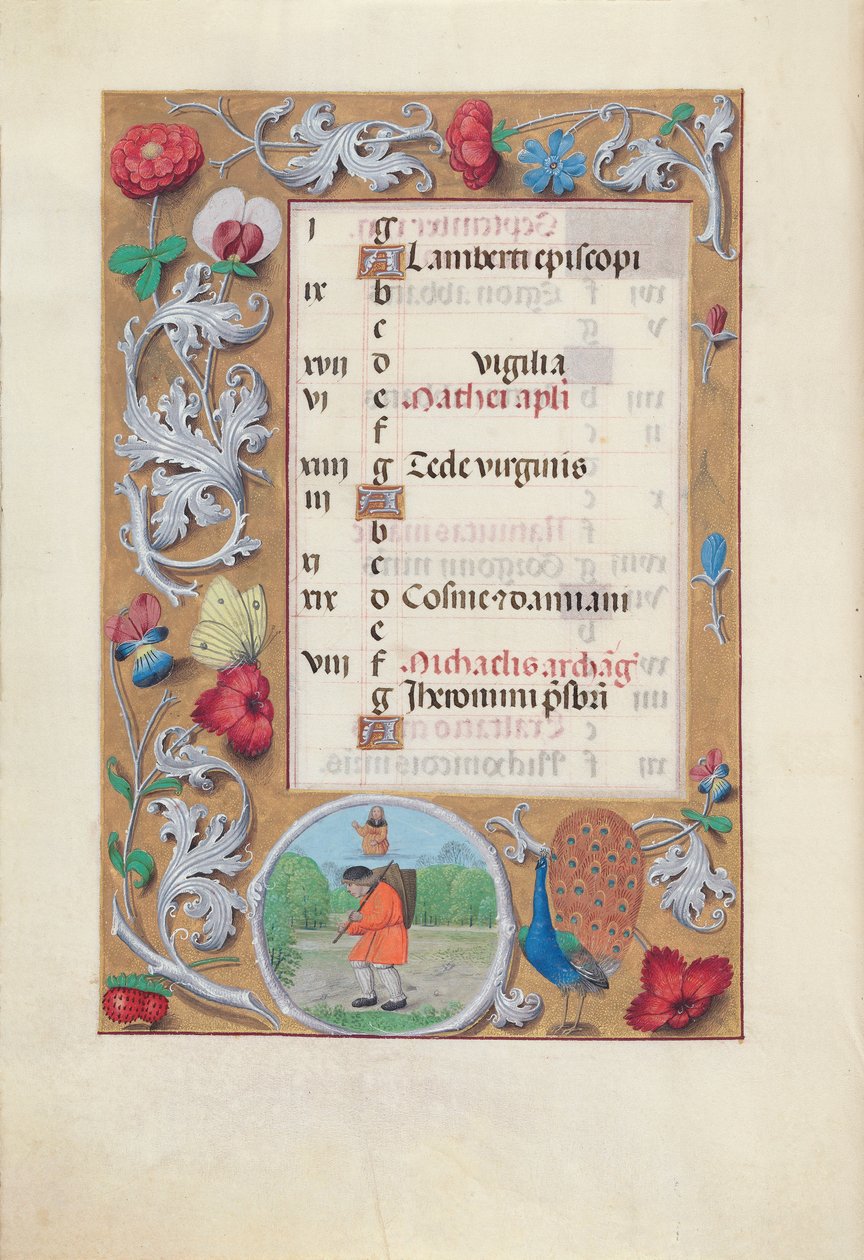 j g
A Lamberti episcopi
ix b
c
xvij d vigilia
vj e Mathei apłi
f
xiiij g Tecle virginis
iij A
b
xj c
xix d Cosme ⁊ damiani
e
viij f Michaelis archāg
g Jheronimi p̄sbrī
A